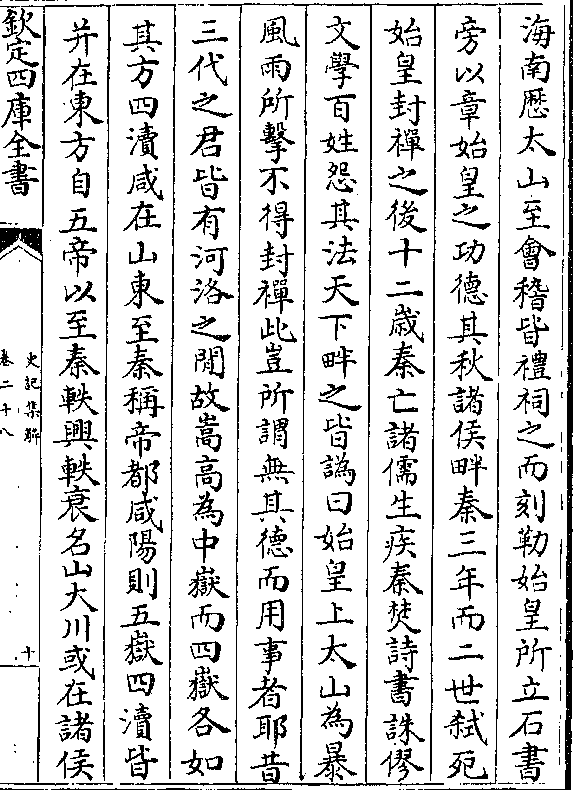 海南歴太山至會稽皆禮祠之而刻勒始皇所立石書
旁以章始皇之功德其秋諸侯畔秦三年而二世弑死
始皇封禪之後十二歳秦亡諸儒生疾秦焚詩書誅僇
文學百姓怨其法天下畔之皆譌曰始皇上太山為暴
風雨所擊不得封禪此豈所謂無其德而用事者耶昔
三代之君皆有河洛之閒故嵩高為中嶽而四嶽各如
其方四瀆咸在山東至秦稱帝都咸陽則五嶽四瀆皆
并在東方自五帝以至秦軼興軼衰名山大川或在諸侯
欽定四庫全書
史記集解
卷二十八
十